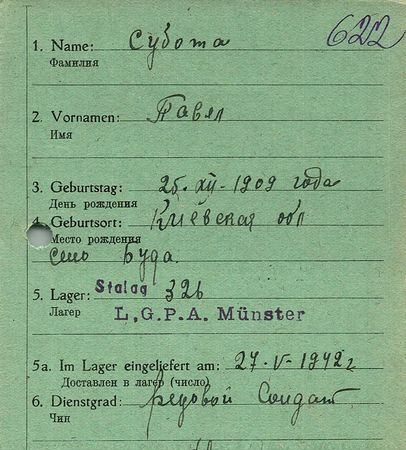 622
1. Name: Субота
Фамилия
2. Vornamen: Павел
Имя
3. Geburtstag: 25. XII - 1909 года
День рождения
4. Geburtsort: Киевская обл
Место рождения
село Буда.
5. Lager: Stalag 326
Лагер
L,G.P.A. Münster
5a. Im Lager eingeliefert am: 27-V-1942 г
Доставлен в лагер (число)
6. Dienstgrad: редовой Солдат
Чин